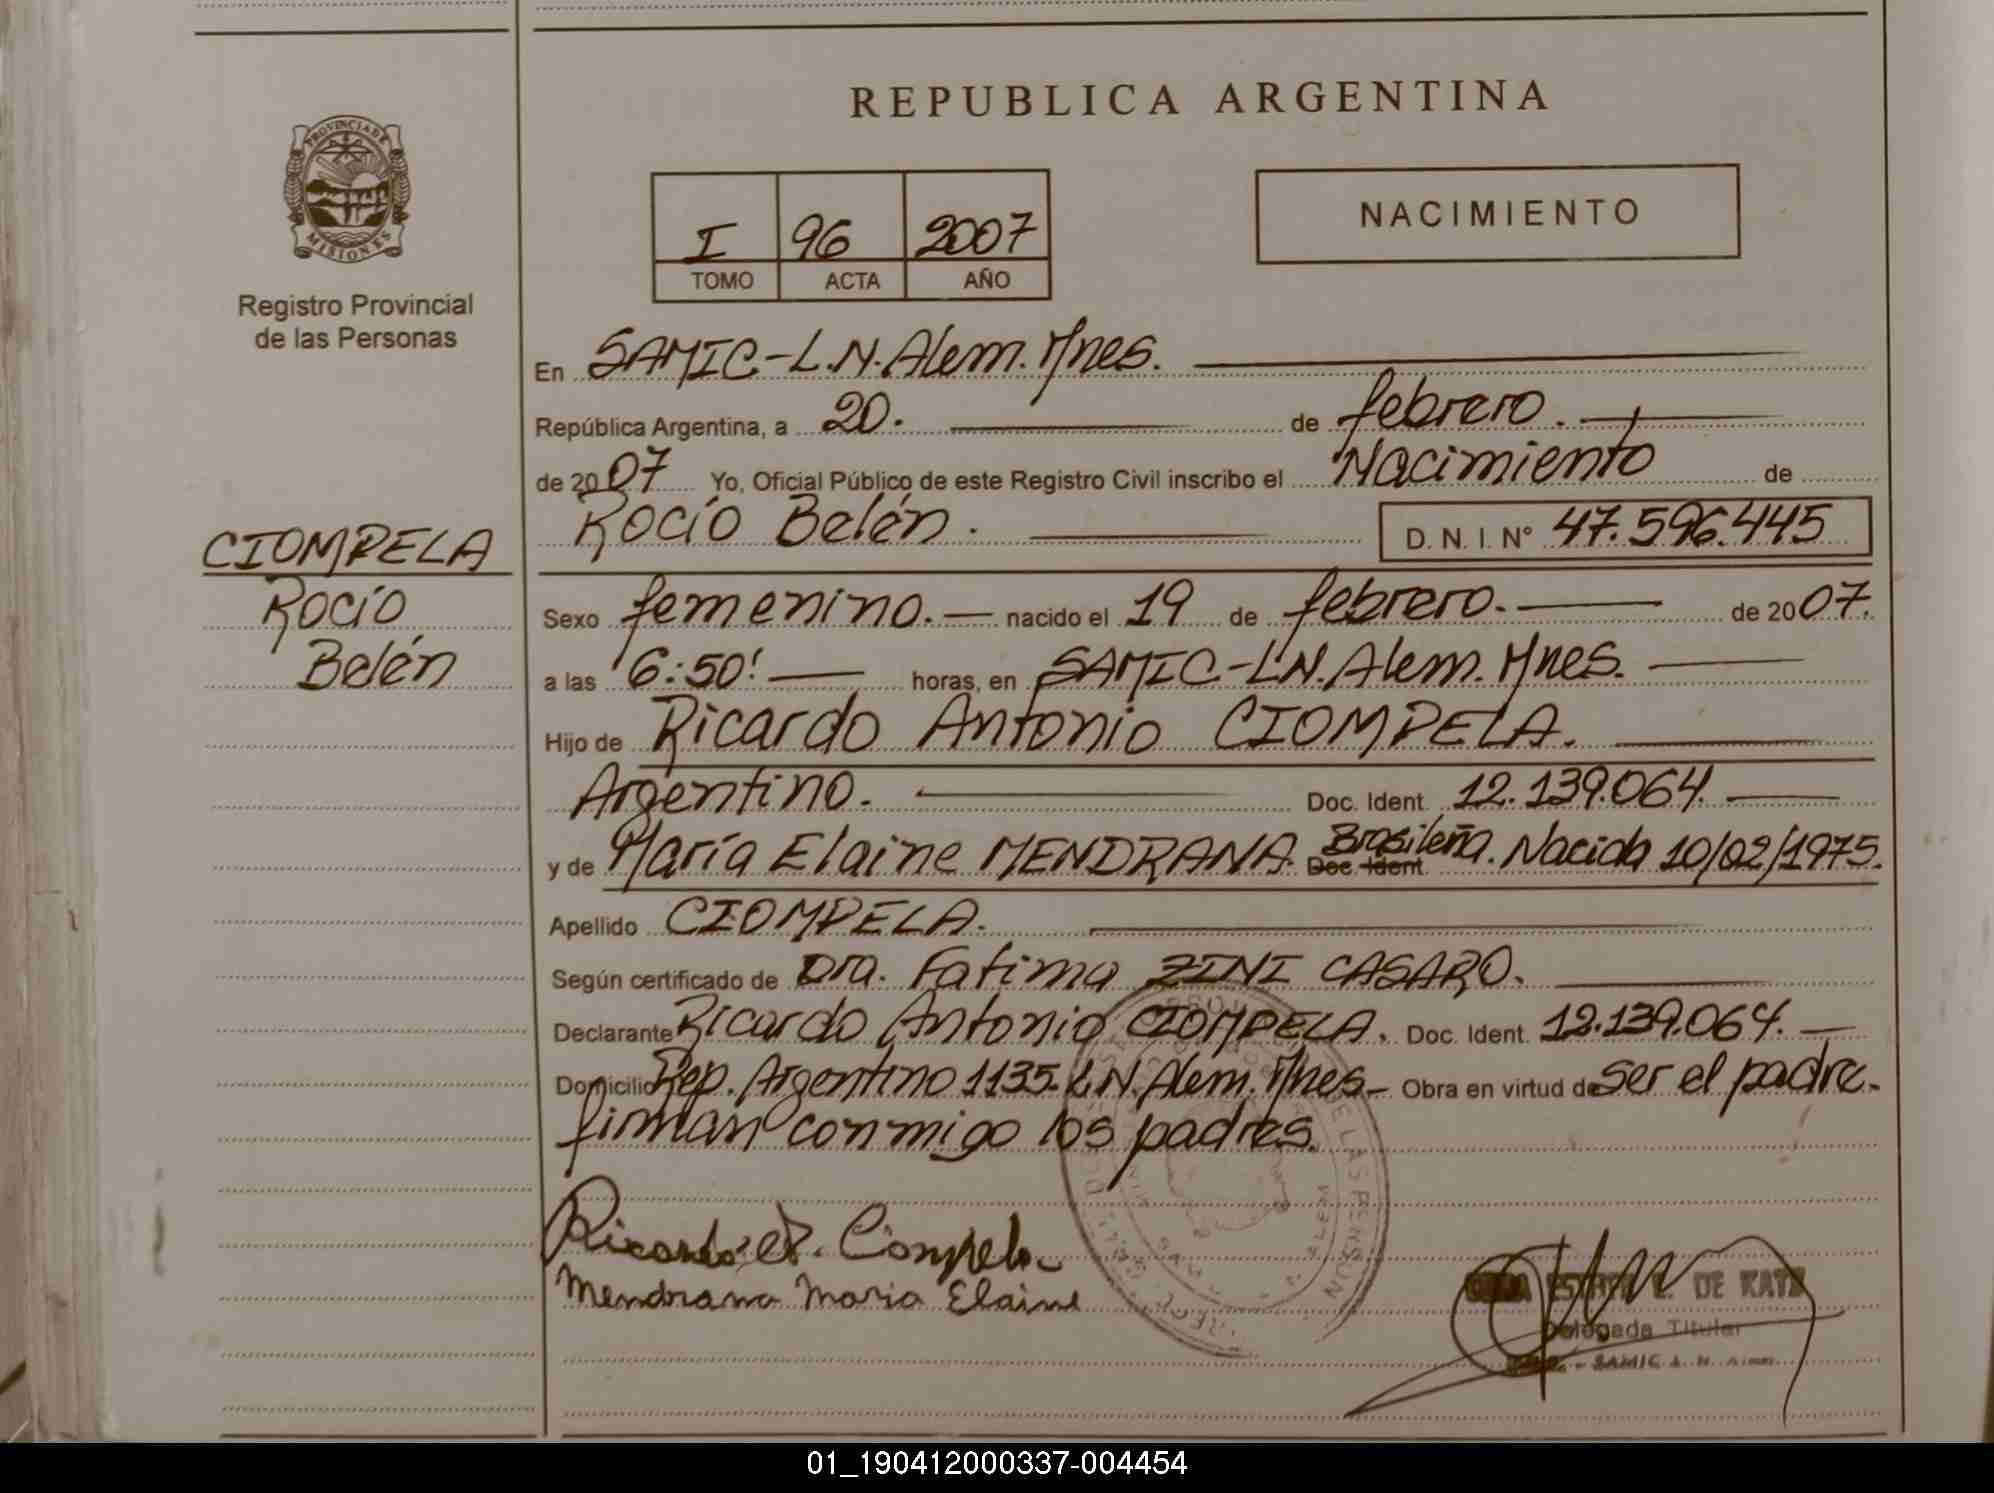 REPUBLICA ARGENTINA
PROVINCIA DE
MISIONES
Registro Provincial
de las Personas
I 96 2007
TOMO ACTA AÑO
NACIMIENTO
En SAMIC-L.N.Alem.Mnes.
República Argentina, a 20. de febrero.
de 2007 Yo, Oficial Público de este Registro Civil inscribo el Nacimiento de
Rocío Belén. D. N. I. N° 47.596.445
CIOMPELA
Rocío
Belén
Sexo femenino. nacido el 19 de febrero. de 2007.
a las 6:50' horas, en SAMIC-L.N.Alem.Mnes.
Hijo de Ricardo Antonio CIOMPELA.
Argentino. Doc. Ident 12.139.064.
y de María Elaine MENDRANA. Doc. Ident Brasileña. Nacida 10/02/1975.
Apellido CIOMPELA.
Según certificado de Dra. Fatima ZINI CASARO.
Declarante Ricardo Antonio CIOMPELA. Doc. Ident. 12.139.064.
Domicilio Rep. Argentino 1135. L.N.Alem.Mnes- Obra en virtud de ser el padre.
firman conmigo los padres.
Ricardo A. Compela
Mendrana Maria Elaine
DE KATZ
Delegada Titular
SAMIC L. N. Alem
01_190412000337-004454